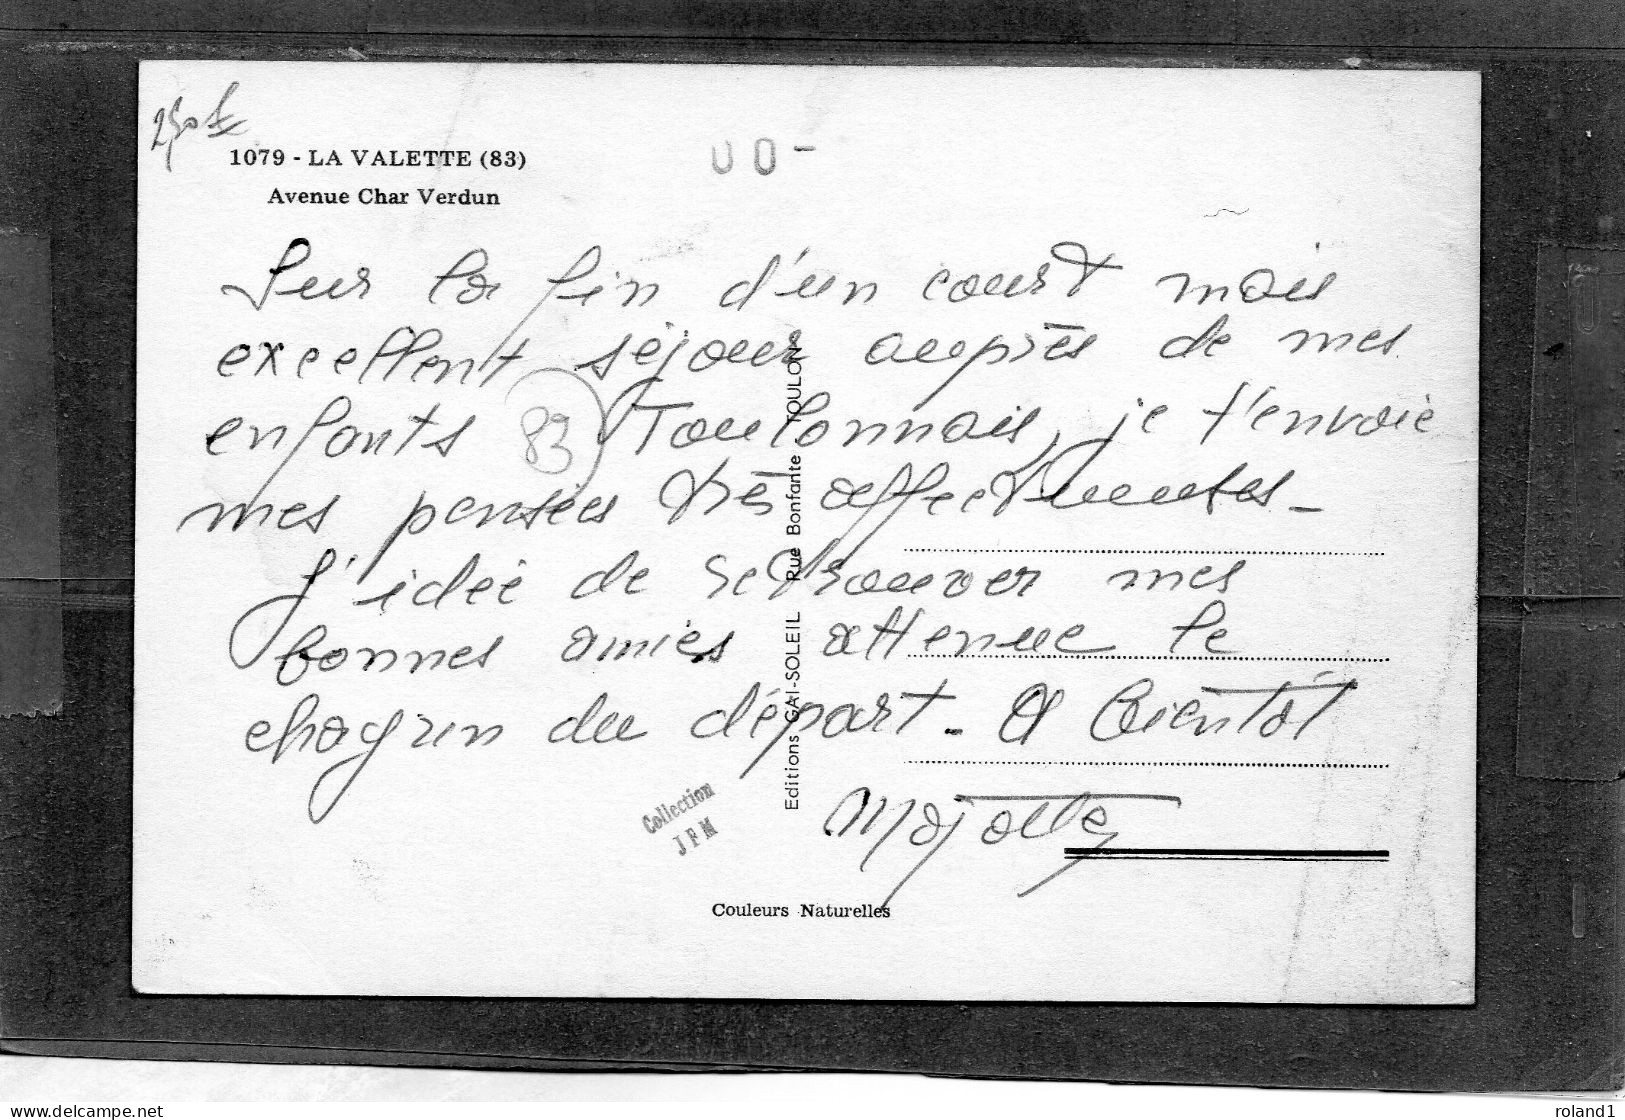 1079 - LA VALETTE (83)
Avenue Char Verdun
00-
Sur la fin d'un court mais
excellent séjour auprès de mes
enfants Toulonnais, je t'envoie
83
mes pensées très affectueuses -
J'idée de retrouver mes
bonnes amies attenue le
chagrin du départ - A bientôt
Editions GAI-SOLEIL Rue Bonfante TOULON
Collection
JFM
Couleurs Naturelles
delcampe.net
roland1